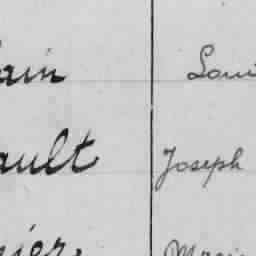 ain Loui
ault Joseph
nier Marie